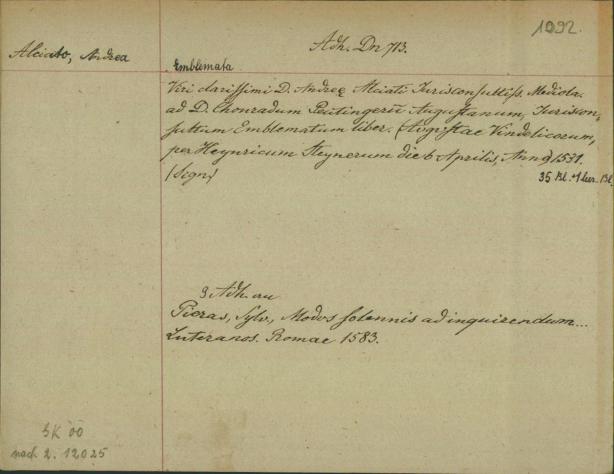 1092.
Adh. Dn 713.
Alciato, Andrea
Emblemata
Viri clarissimi D. Andreę Alciati Jurisconsultiss. Mediola.
ad D. Chonradum Peutingerū Augustanum, Juriscon,
sultum Emblematum liber. (Augustae Vindelicorum,
per Heynricum Steynerum die 6 Aprilis, Anno) 1531.
(Sign) 35 Bl. +1 leer. Bl.
3 Adh. au
Pieras, Sylv., Modos solennis ad inquirendum...
Luteranos. Romae 1583.
SK 00
nach 2. 12025